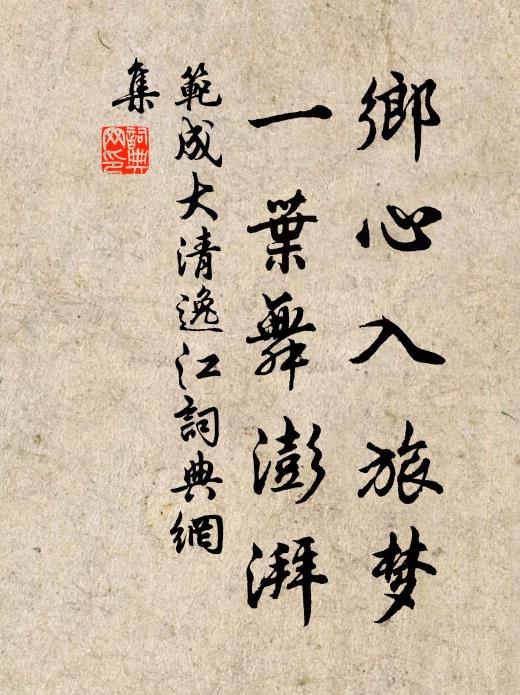 鄉心入旅梦
一葉舞澎湃
範成大清逸江詞典網
集
詞典网印